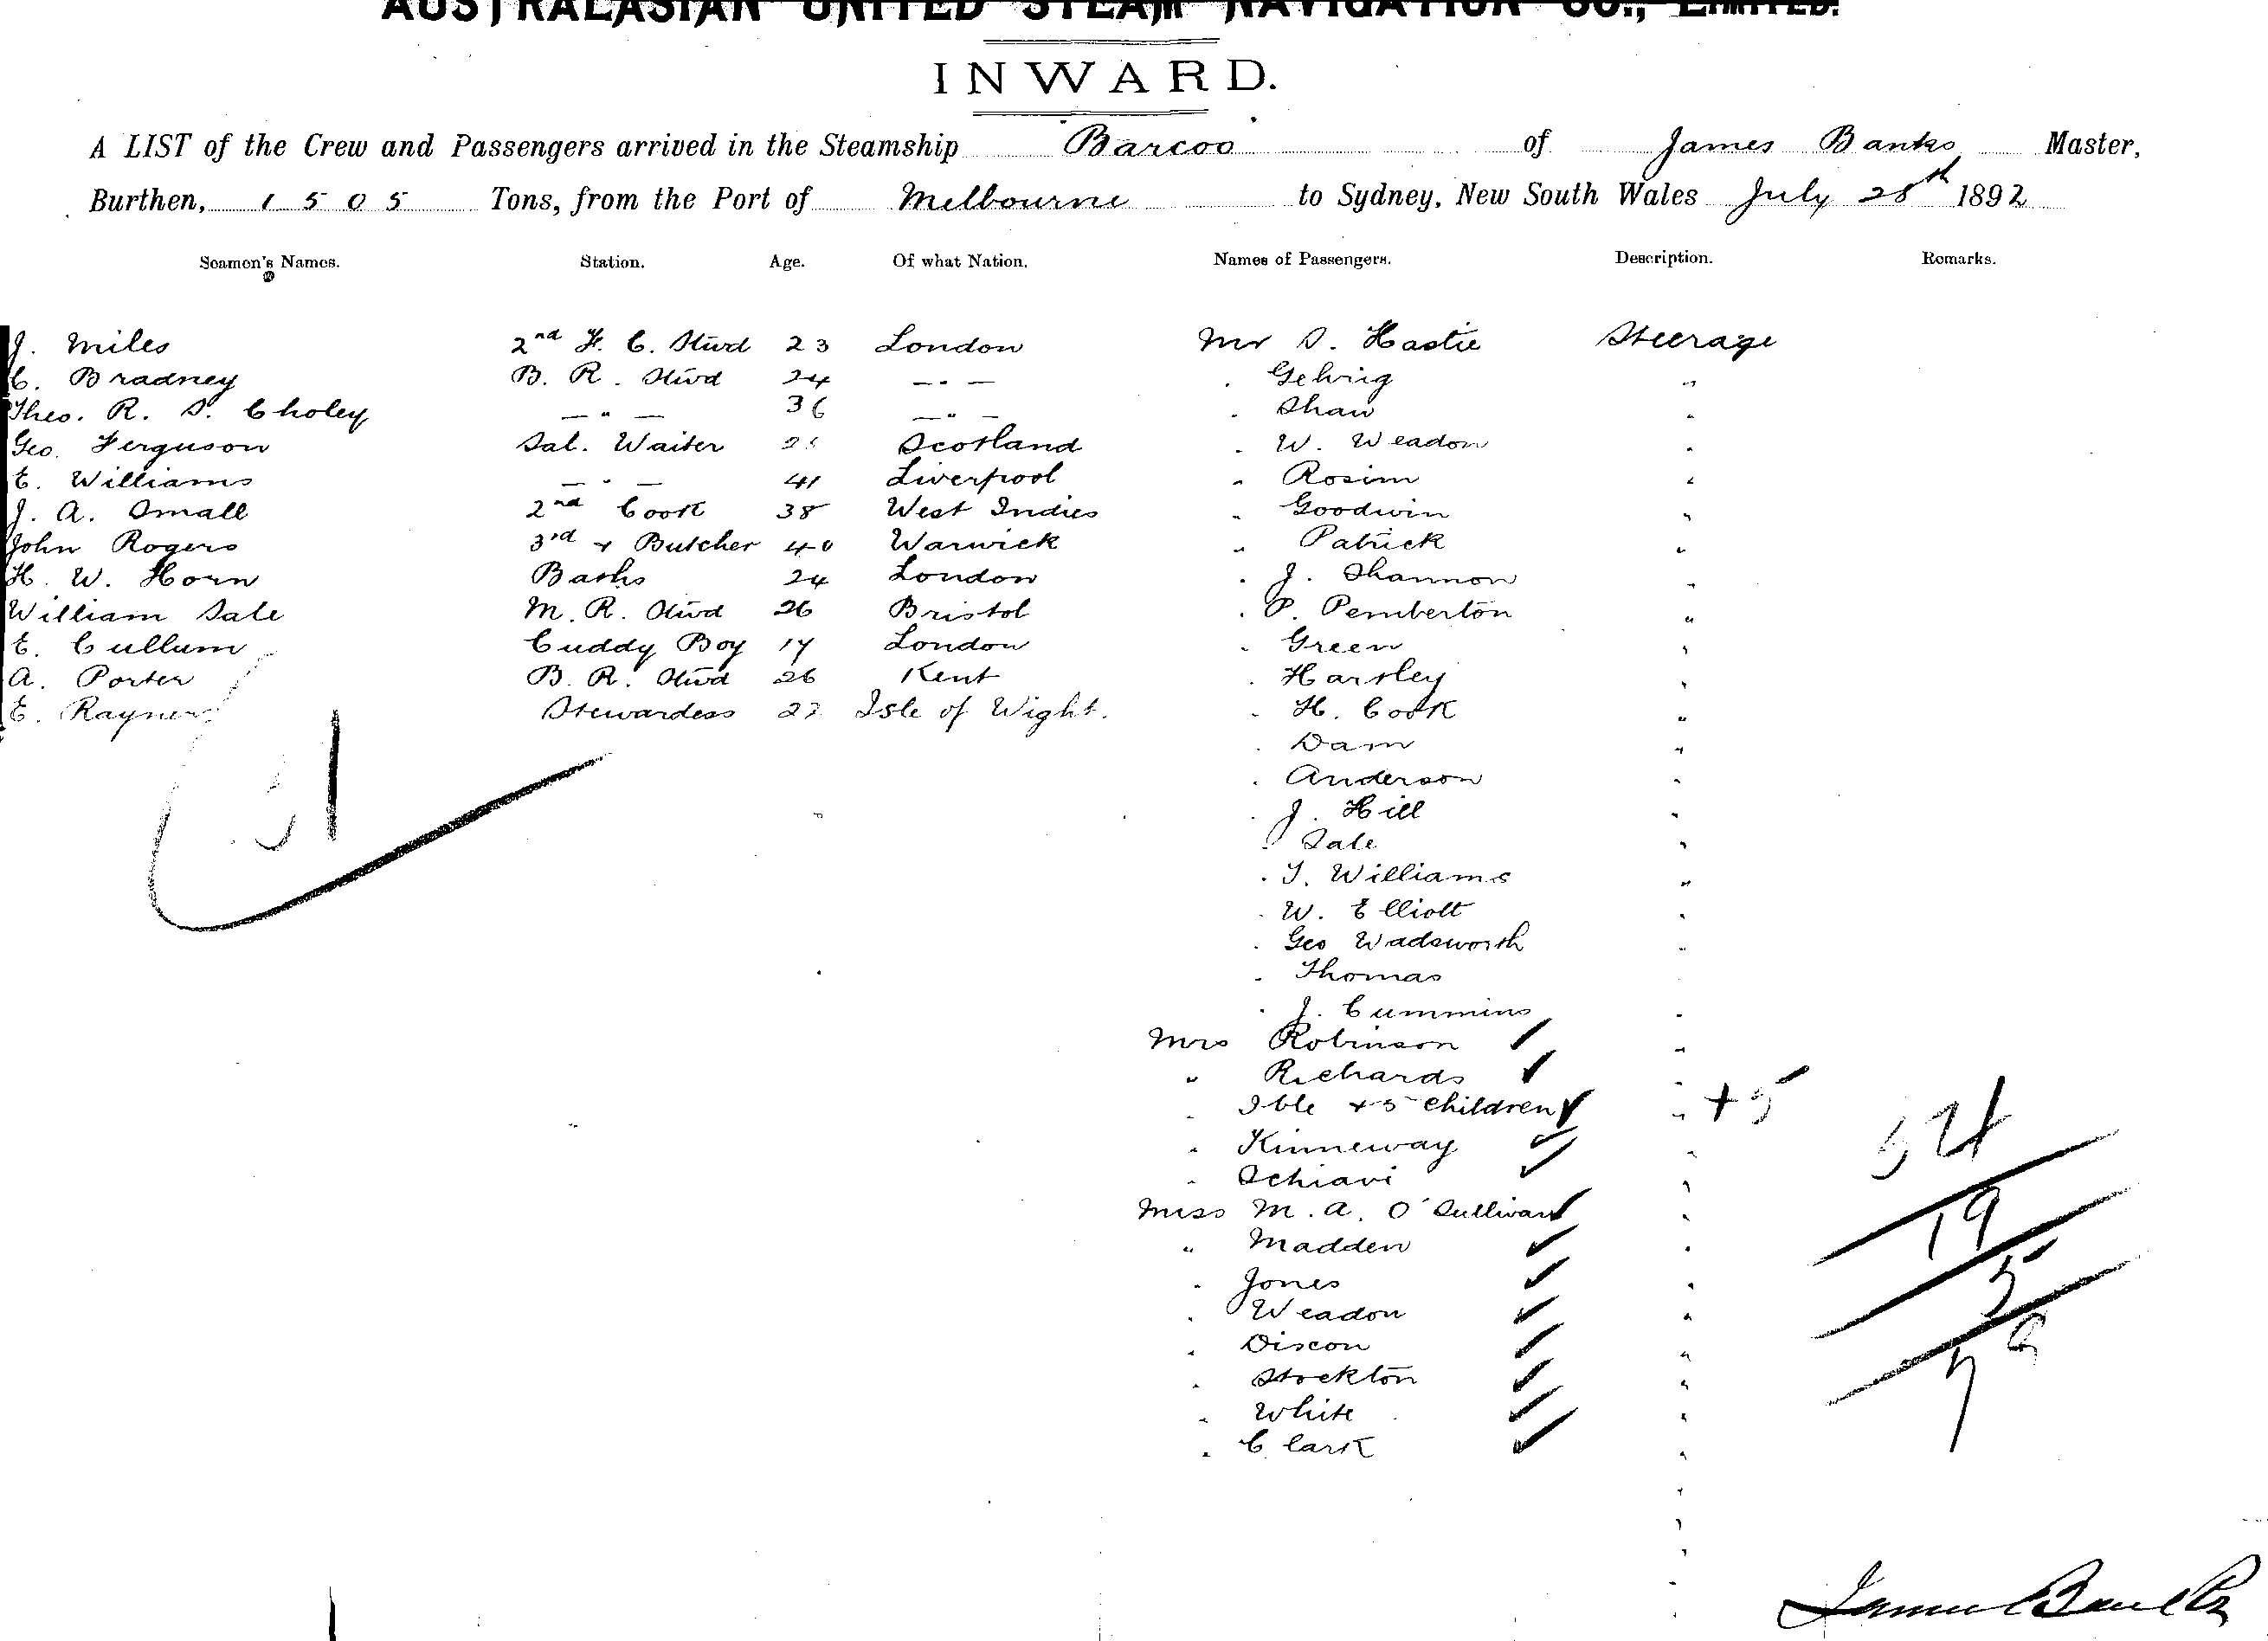 AUSTRALASIAN UNITED STEAM NAVIGATION CO., LIMITED.
INWARD.
A LIST of the Crew and Passengers arrived in the Steamship Barcoo of James Banks Master,
Burthen, 1505 Tons, from the Port of Melbourne to Sydney, New South Wales July 28th 1892
Seamen's Names. Station. Age. Of what Nation. Names of Passengers. Description. Remarks.
J. Miles 2nd F. C. Stwd 23 London Mr S. Hastie Steerage
C. Bradney B. R. Stwd 24 — " — " Gehrig "
Theo. R. S. Choley — " — 36 — " — " Shaw "
Geo. Ferguson Sal. Waiter Scotland " W. Weadon "
E. Williams — " — 41 Liverpool " Rosim "
J. A. Small 2nd Cook 38 West Indies " Goodwin "
John Rogers 3rd + Butcher 40 Warwick " Patrick "
H. W. Horn Baths 24 London " J. Shannon "
William Sale M. R. Stwd 26 Bristol " P. Pemberton "
E. Cullum Cuddy Boy 17 London " Green "
A. Porter B. R. Stwd 26 Kent " Hartley "
E. Rayner Stewardess 27 Isle of Wight. " H. Cook "
" Dam "
" Anderson "
" J. Hill "
" Sale "
" T. Williams "
" W. Elliott "
" Geo Wadsworth "
" Thomas
" J. Cummins "
Mrs Robinson "
" Richards "
" Ible + 5 children " + 5
" Kinneway " 54
" Schiavi "
Miss M. A. O'Sullivan " 19
" Madden "
" Jones " 5
" Weadon "
" Discon "
" Stockton "
" White "
" Clark "
James Banks